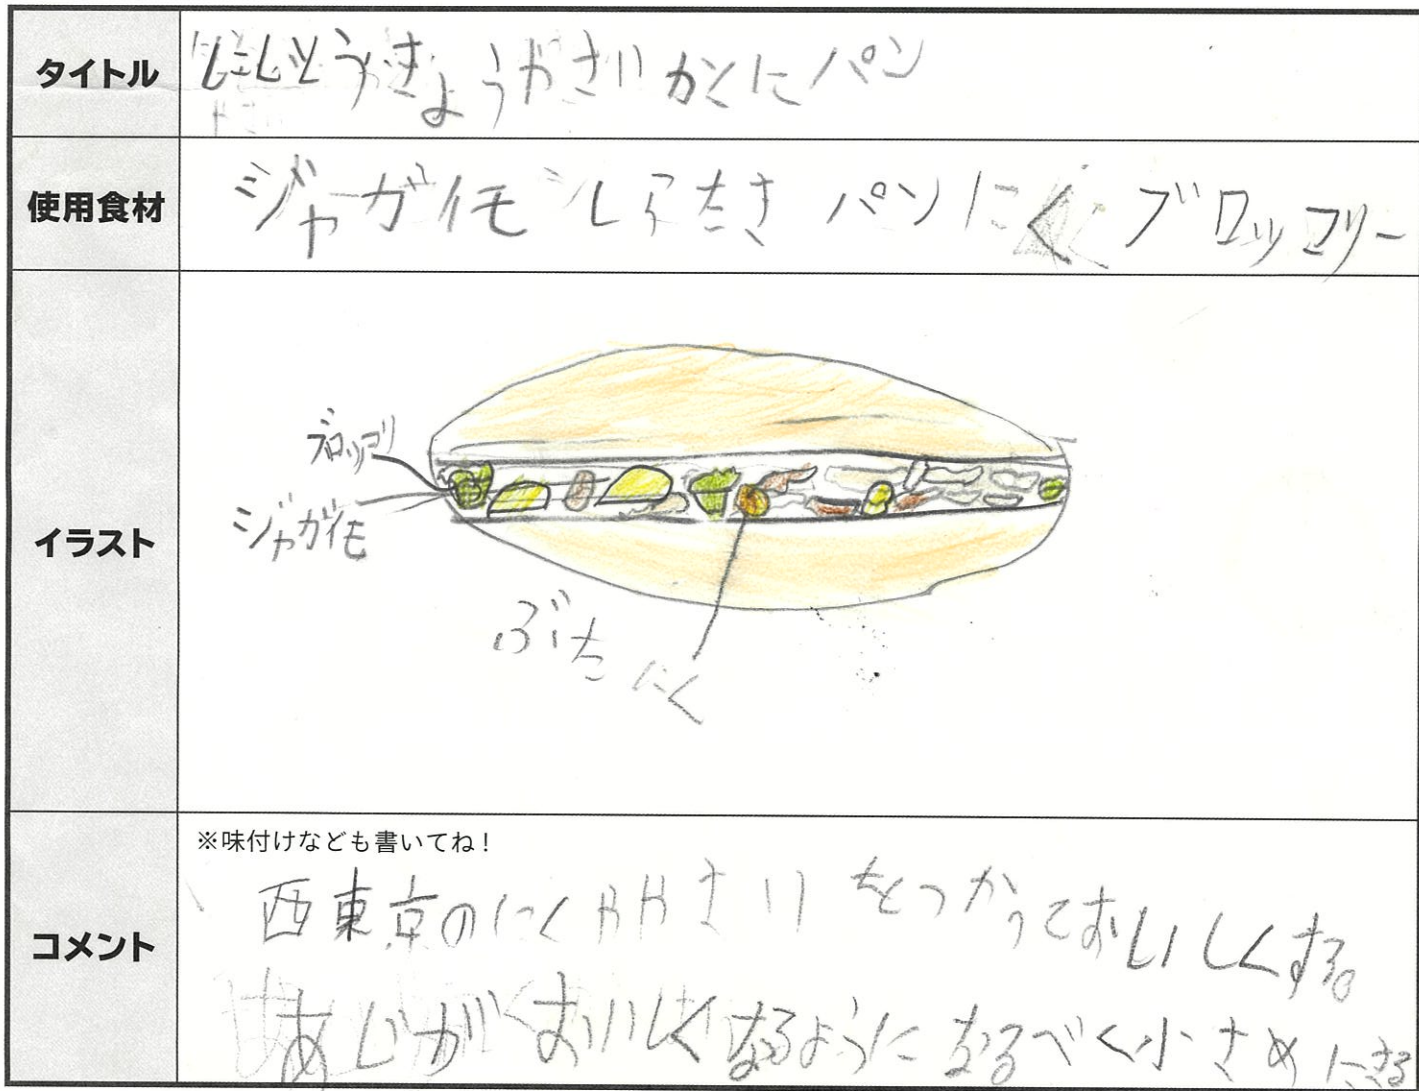 タイトル
にしとうきょうやさいかんにパン
使用食材
ジャガイモ しらたき パン にく ブロッコリー
イラスト
ブロッコリ
ジャガイモ
ぶちにく
コメント
※味付けなども書いてね!
西東京のにくややさいをつかっておいしくする。
あじがおいしくなるようになるべく小さめにきる